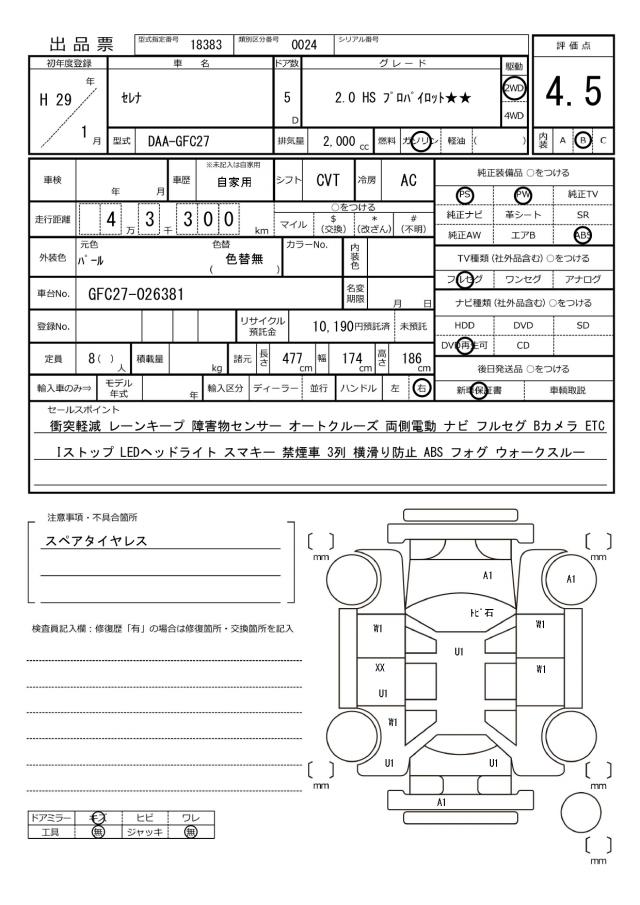 出品票 型式指定番号 18383 類別区分番号 0024 シリアル番号
評価点
4.5
内装 A B C
初年度登録 車名 ドア数 グレード 駆動
H 29 年
1 月
セレナ 5 D 2.0 HS プロパイロット★★ 2WD
4WD
型式 DAA-GFC27 排気量 2,000 cc 燃料 ガソリン 軽油 ( )
車検 年 月 車歴 ※未記入は自家用 自家用 シフト CVT 冷房 AC
走行距離 4 万 3 千 3 0 0 km
○をつける
マイル $(交換) *(改ざん) #(不明)
外装色 元色 パール 色替 ( 色替無 ) カラーNo. 内装色
車台No. GFC27-026381 名変期限 月 日
登録No. リサイクル預託金 10,190円預託済 未預託
定員 8( )人 積載量 kg 諸元 長さ 477cm 幅 174cm 高さ 186cm
輸入車のみ⇒ モデル年式 年 輸入区分 ディーラー 並行 ハンドル 左 右
純正装備品 ○をつける
PS PW 純正TV
純正ナビ 革シート SR
純正AW エアB ABS
TV種類(社外品含む)○をつける
フルセグ ワンセグ アナログ
ナビ種類(社外品含む)○をつける
HDD DVD SD
DVD再生可 CD
後日発送品 ○をつける
新車保証書 車輌取説
セールスポイント
衝突軽減 レーンキープ 障害物センサー オートクルーズ 両側電動 ナビ フルセグ Bカメラ ETC
Iストップ LEDヘッドライト スマキー 禁煙車 3列 横滑り防止 ABS フォグ ウォークスルー
注意事項・不具合箇所
スペアタイヤレス
検査員記入欄：修復歴「有」の場合は修復箇所・交換箇所を記入
ドアミラー キズ ヒビ ワレ
工具 無 ジャッキ 無
〔 〕mm
〔 〕mm
A1
A1
トビ石
W1
W1
U1
XX
W1
U1
W1
U1
U1
〔 〕mm
〔 〕mm
A1
〔 〕mm